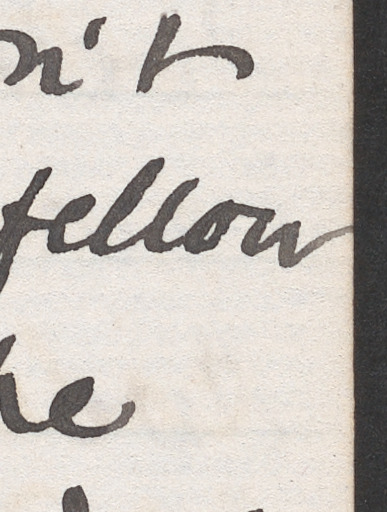 n't
fellow
he